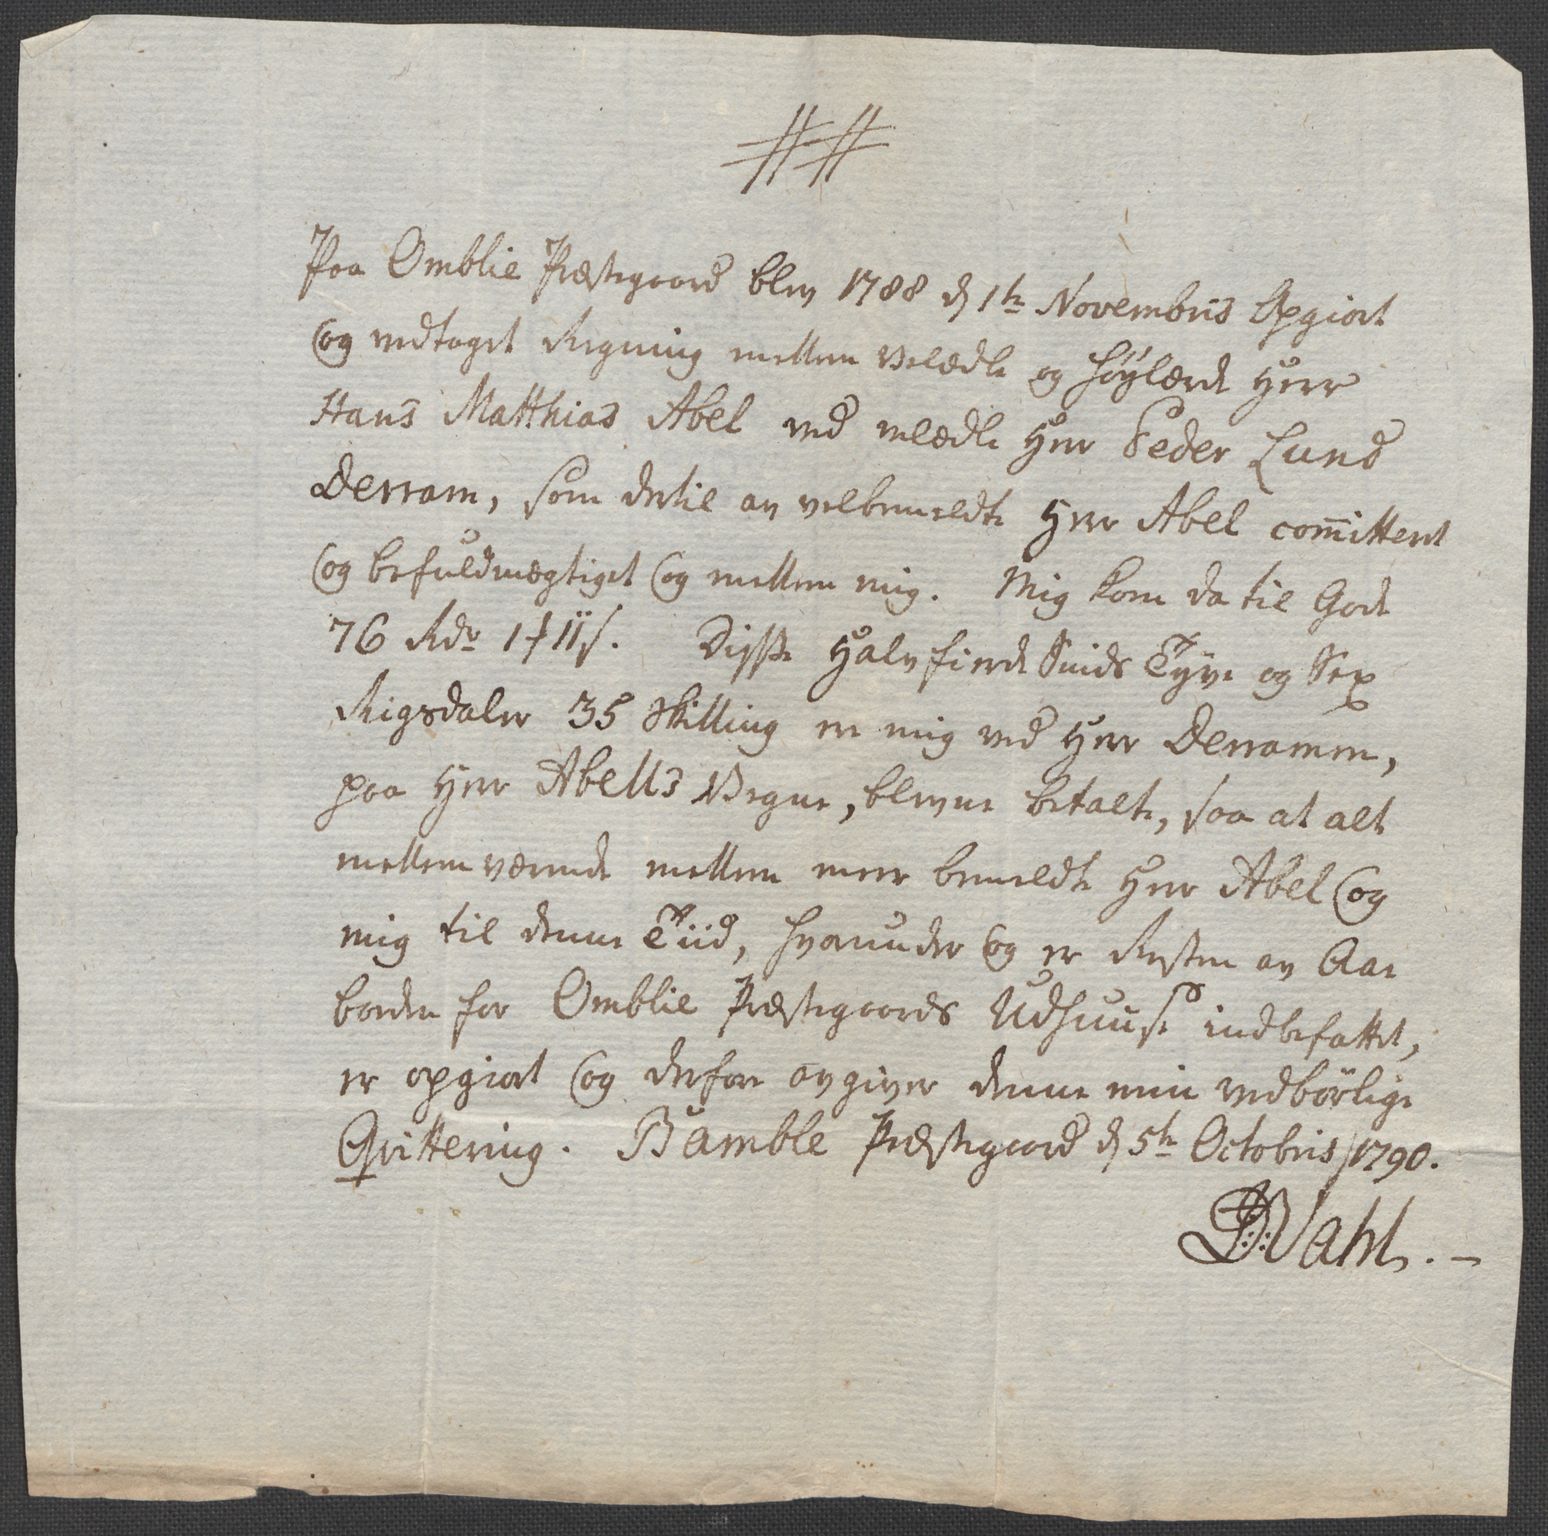 Paa Omblie Præstegaard blev 1788 d 1te Novembris Opgiort
Og vedtaget Regning mellem Velædle og Høylærde Herr
Hans Matthias Abel ved velædle Herr Peder Lund
Derram, som dertil av velbemeldte Herr Abel com̅itteret
Og befuldmægtiget Og mellem mig. Mig kom da til Gode
76 Rdr 1 ℔ 11 s. Disse Halvfierde Sinds Tyve og Sex
Rigsdaler 35 Skilling er mig ved Herr Derramen,
paa Herr Abells Vegne, blevne betalte, saa at alt
mellemværende mellem meer bemeldte Herr Abel Og
mig til denne Tiid, hvorunder Og er Resten av Aae
boeden for Omblie Præstegaards Udhuuse indbefattet,
er opgiort Og derfore avgiver denne min vedbörlige
Qvittering. Bamble Præstegaard d 5te Octobris 1790.
D: Vahl. -